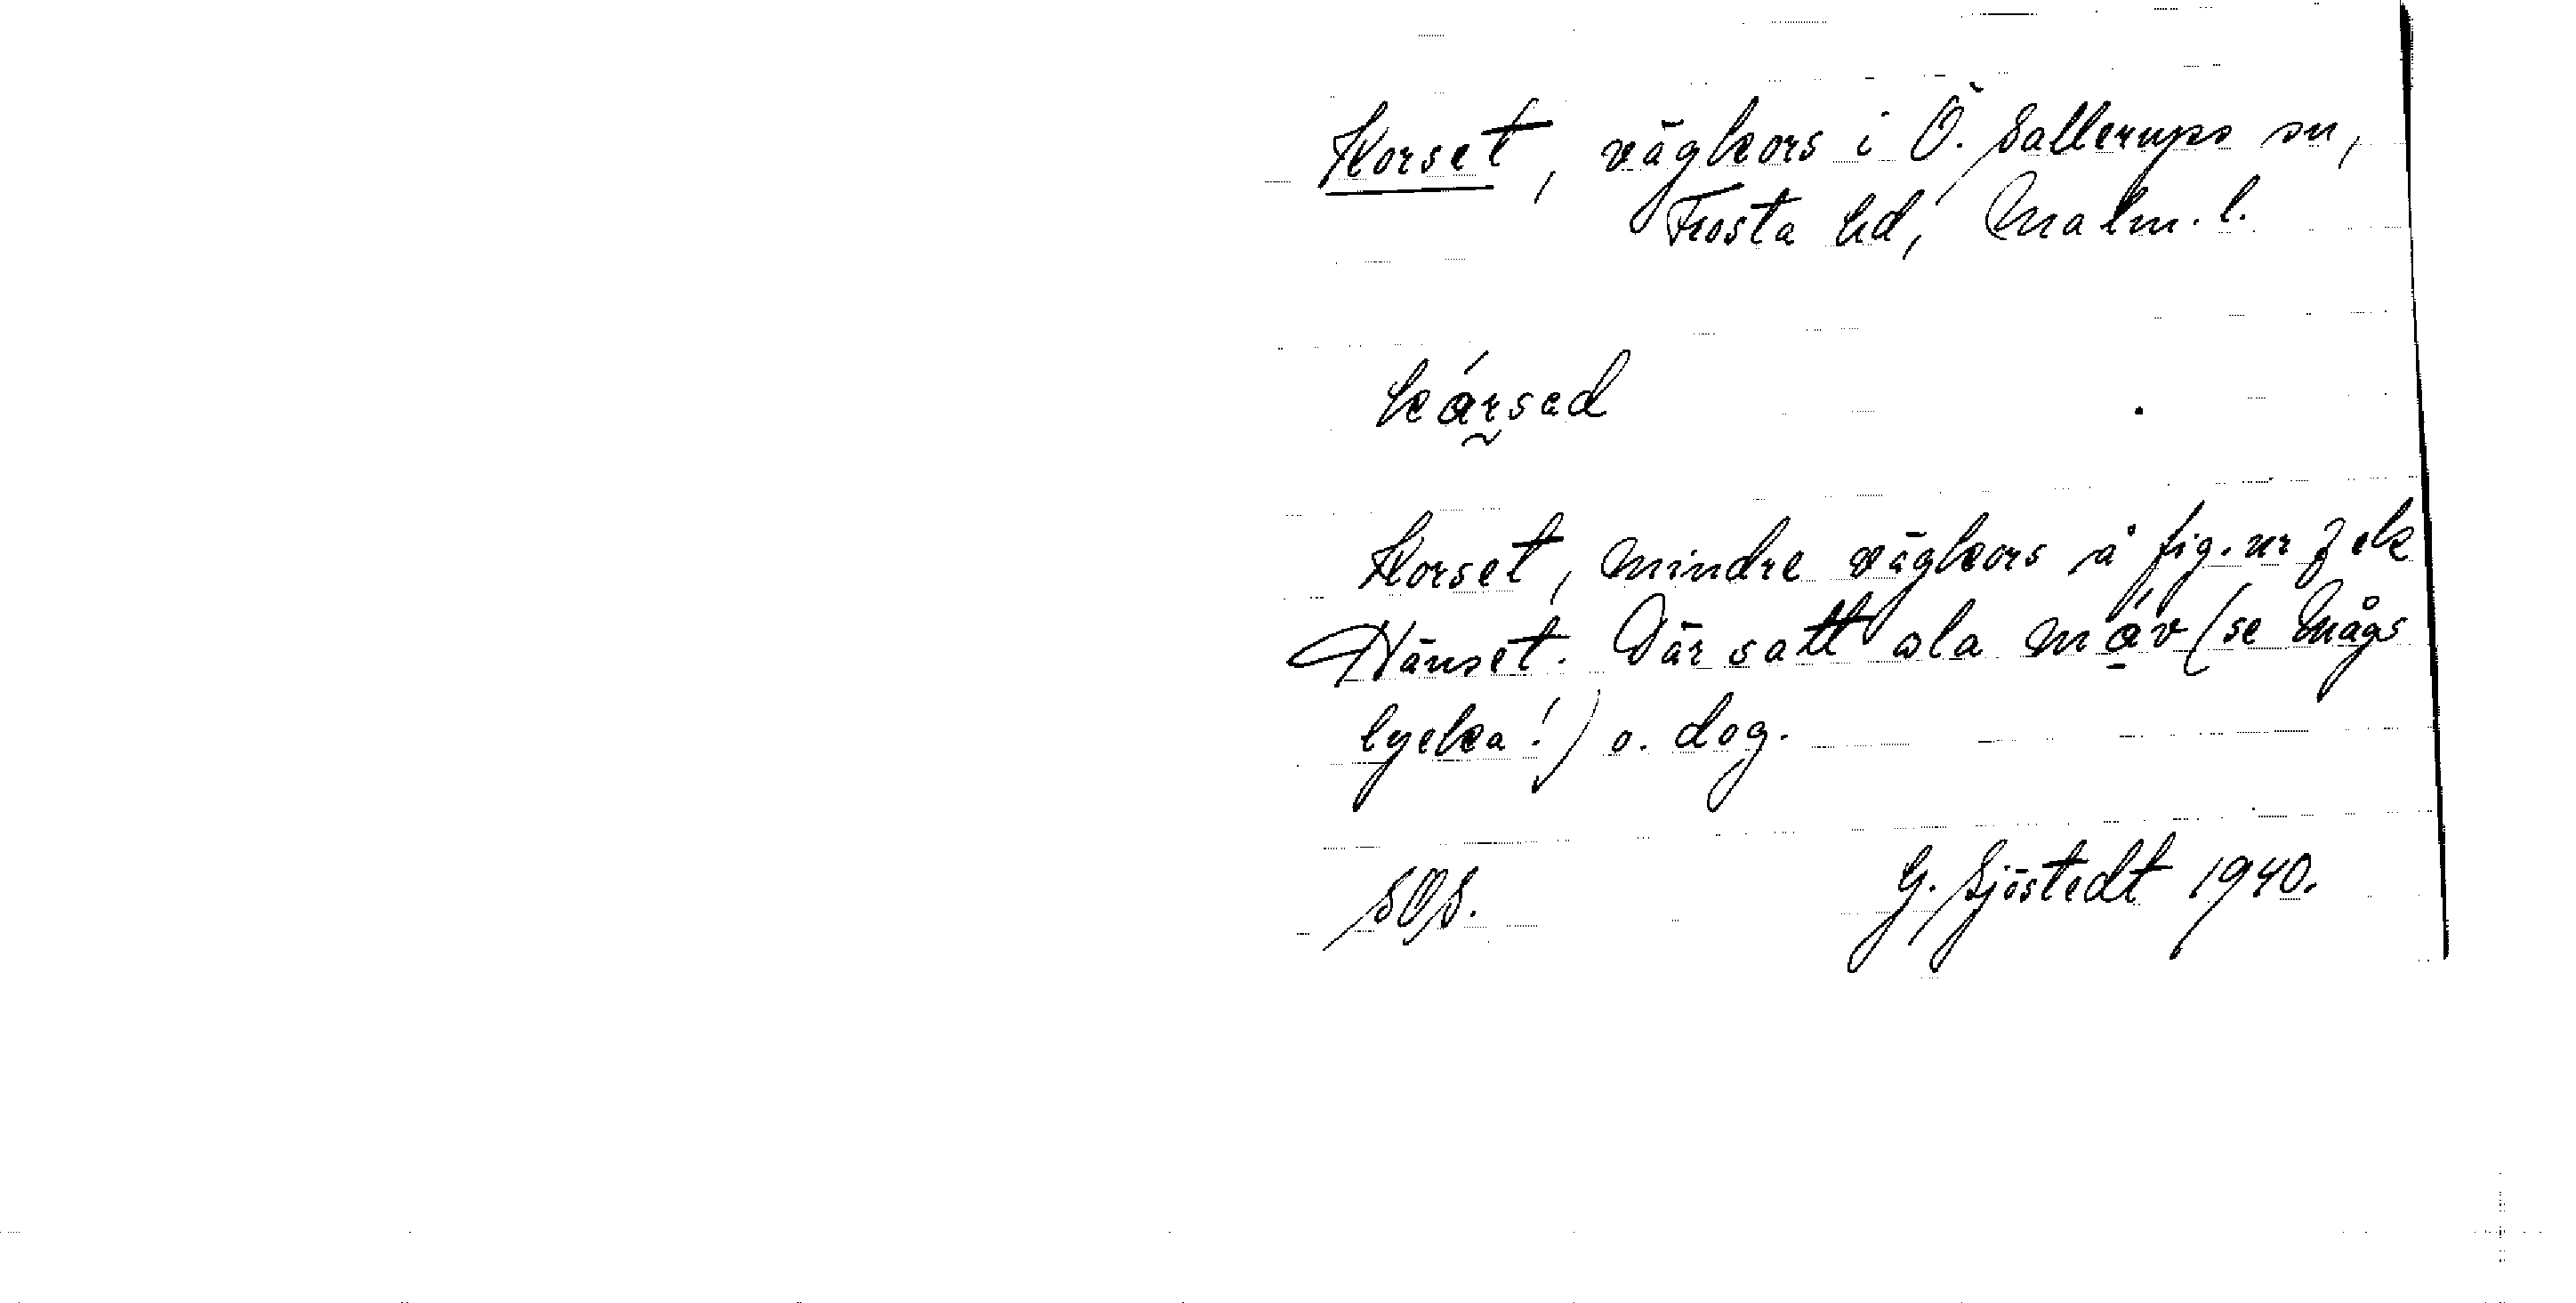 Korset, vägkors i Ö. Sallerups sn,
Frosta hd, Malm. l.
kársed
Korset, mindre vägkors å fig. nr 7 ek
Hänset. Där satt ola máv (se Mågs
lycka!) o. dog.
SOS. G. Sjöstedt 1940.